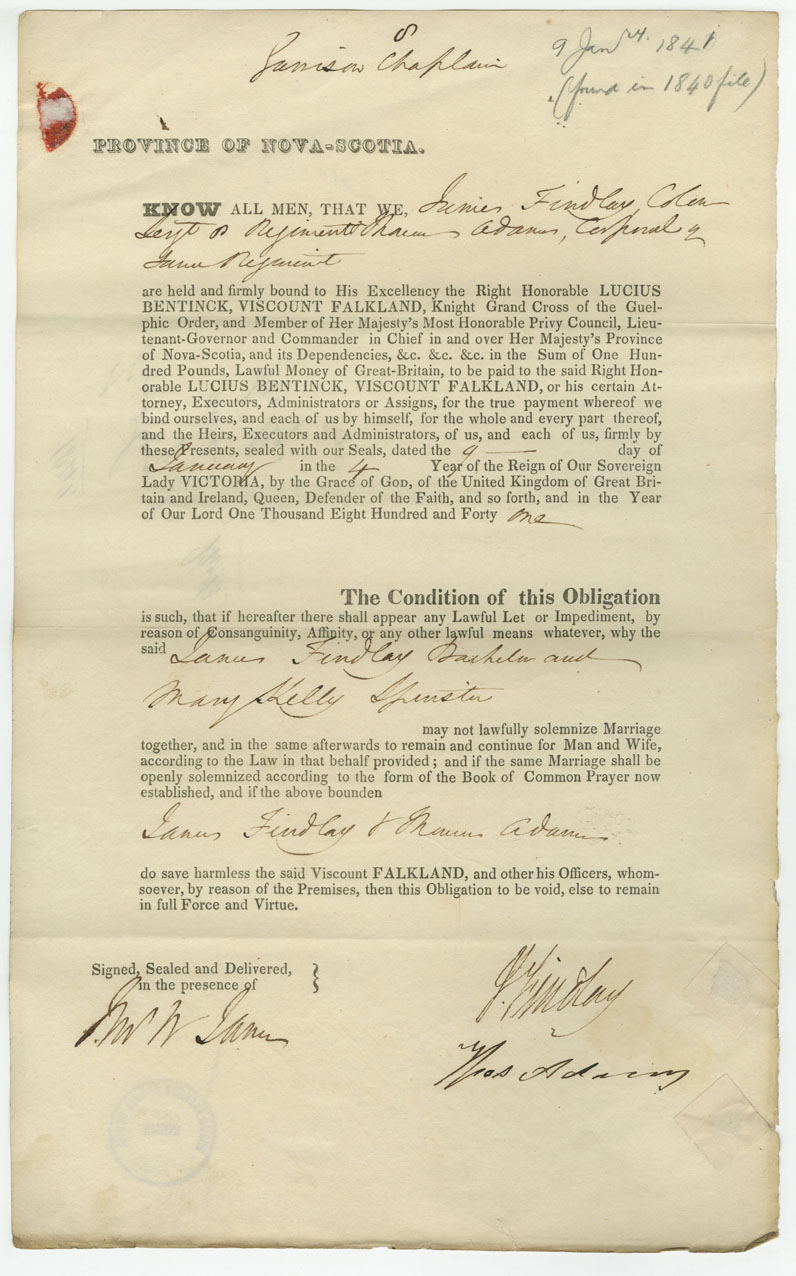 8
Garrison Chaplain
9 Jany. 1841
(found in 1840 file)
PROVINCE OF NOVA-SCOTIA.
KNOW ALL MEN, THAT WE, James Findlay, Color
Sergt 8 Regiment Thomas Adams, Corporal of
Same Regiment
are held and firmly bound to His Excellency the Right Honorable LUCIUS
BENTINCK, VISCOUNT FALKLAND, Knight Grand Cross of the Guel-
phic Order, and Member of Her Majesty's Most Honorable Privy Council, Lieu-
tenant-Governor and Commander in Chief in and over Her Majesty's Province
of Nova-Scotia, and its Dependencies, &c. &c. &c. in the Sum of One Hun-
dred Pounds, Lawful Money of Great-Britain, to be paid to the said Right Hon-
orable LUCIUS BENTINCK, VISCOUNT FALKLAND, or his certain At-
torney, Executors, Administrators or Assigns, for the true payment whereof we
bind ourselves, and each of us by himself, for the whole and every part thereof,
and the Heirs, Executors and Administrators, of us, and each of us, firmly by
these Presents, sealed with our Seals, dated the 9 — day of
January in the 4 Year of the Reign of Our Sovereign
Lady VICTORIA, by the Grace of GOD, of the United Kingdom of Great Bri-
tain and Ireland, Queen, Defender of the Faith, and so forth, and in the Year
of Our Lord One Thousand Eight Hundred and Forty one
The Condition of this Obligation
is such, that if hereafter there shall appear any Lawful Let or Impediment, by
reason of Consanguinity, Affinity, or any other lawful means whatever, why the
said James Findlay Bachelor and
Mary Kelly Spinster
may not lawfully solemnize Marriage
together, and in the same afterwards to remain and continue for Man and Wife,
according to the Law in that behalf provided; and if the same Marriage shall be
openly solemnized according to the form of the Book of Common Prayer now
established, and if the above bounden
James Findlay & Thomas Adams
do save harmless the said Viscount FALKLAND, and other his Officers, whom-
soever, by reason of the Premises, then this Obligation to be void, else to remain
in full Force and Virtue.
Signed, Sealed and Delivered,
in the presence of
W James
J. Findlay
Thos Adams